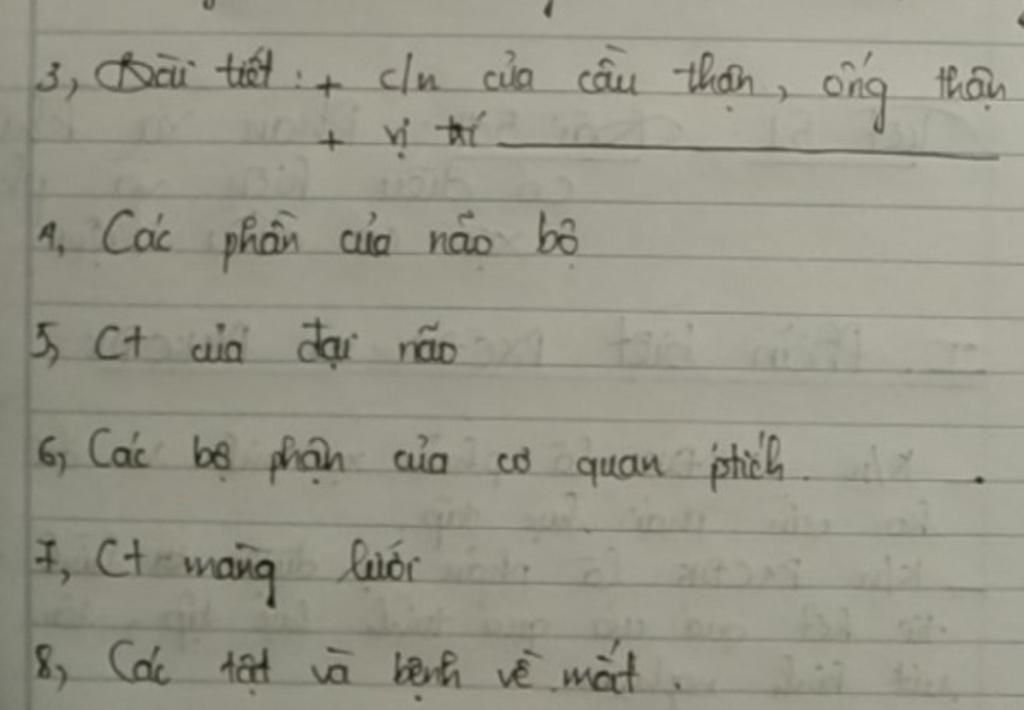 3, Bài tiết: + c/n của cầu thận, ống thận
+ vị trí
4, Các phần của não bộ
5, Ct của đại não
6, Các bộ phận của cơ quan ptích.
7, Ct màng lưới
8, Các tật và bệnh về mắt.